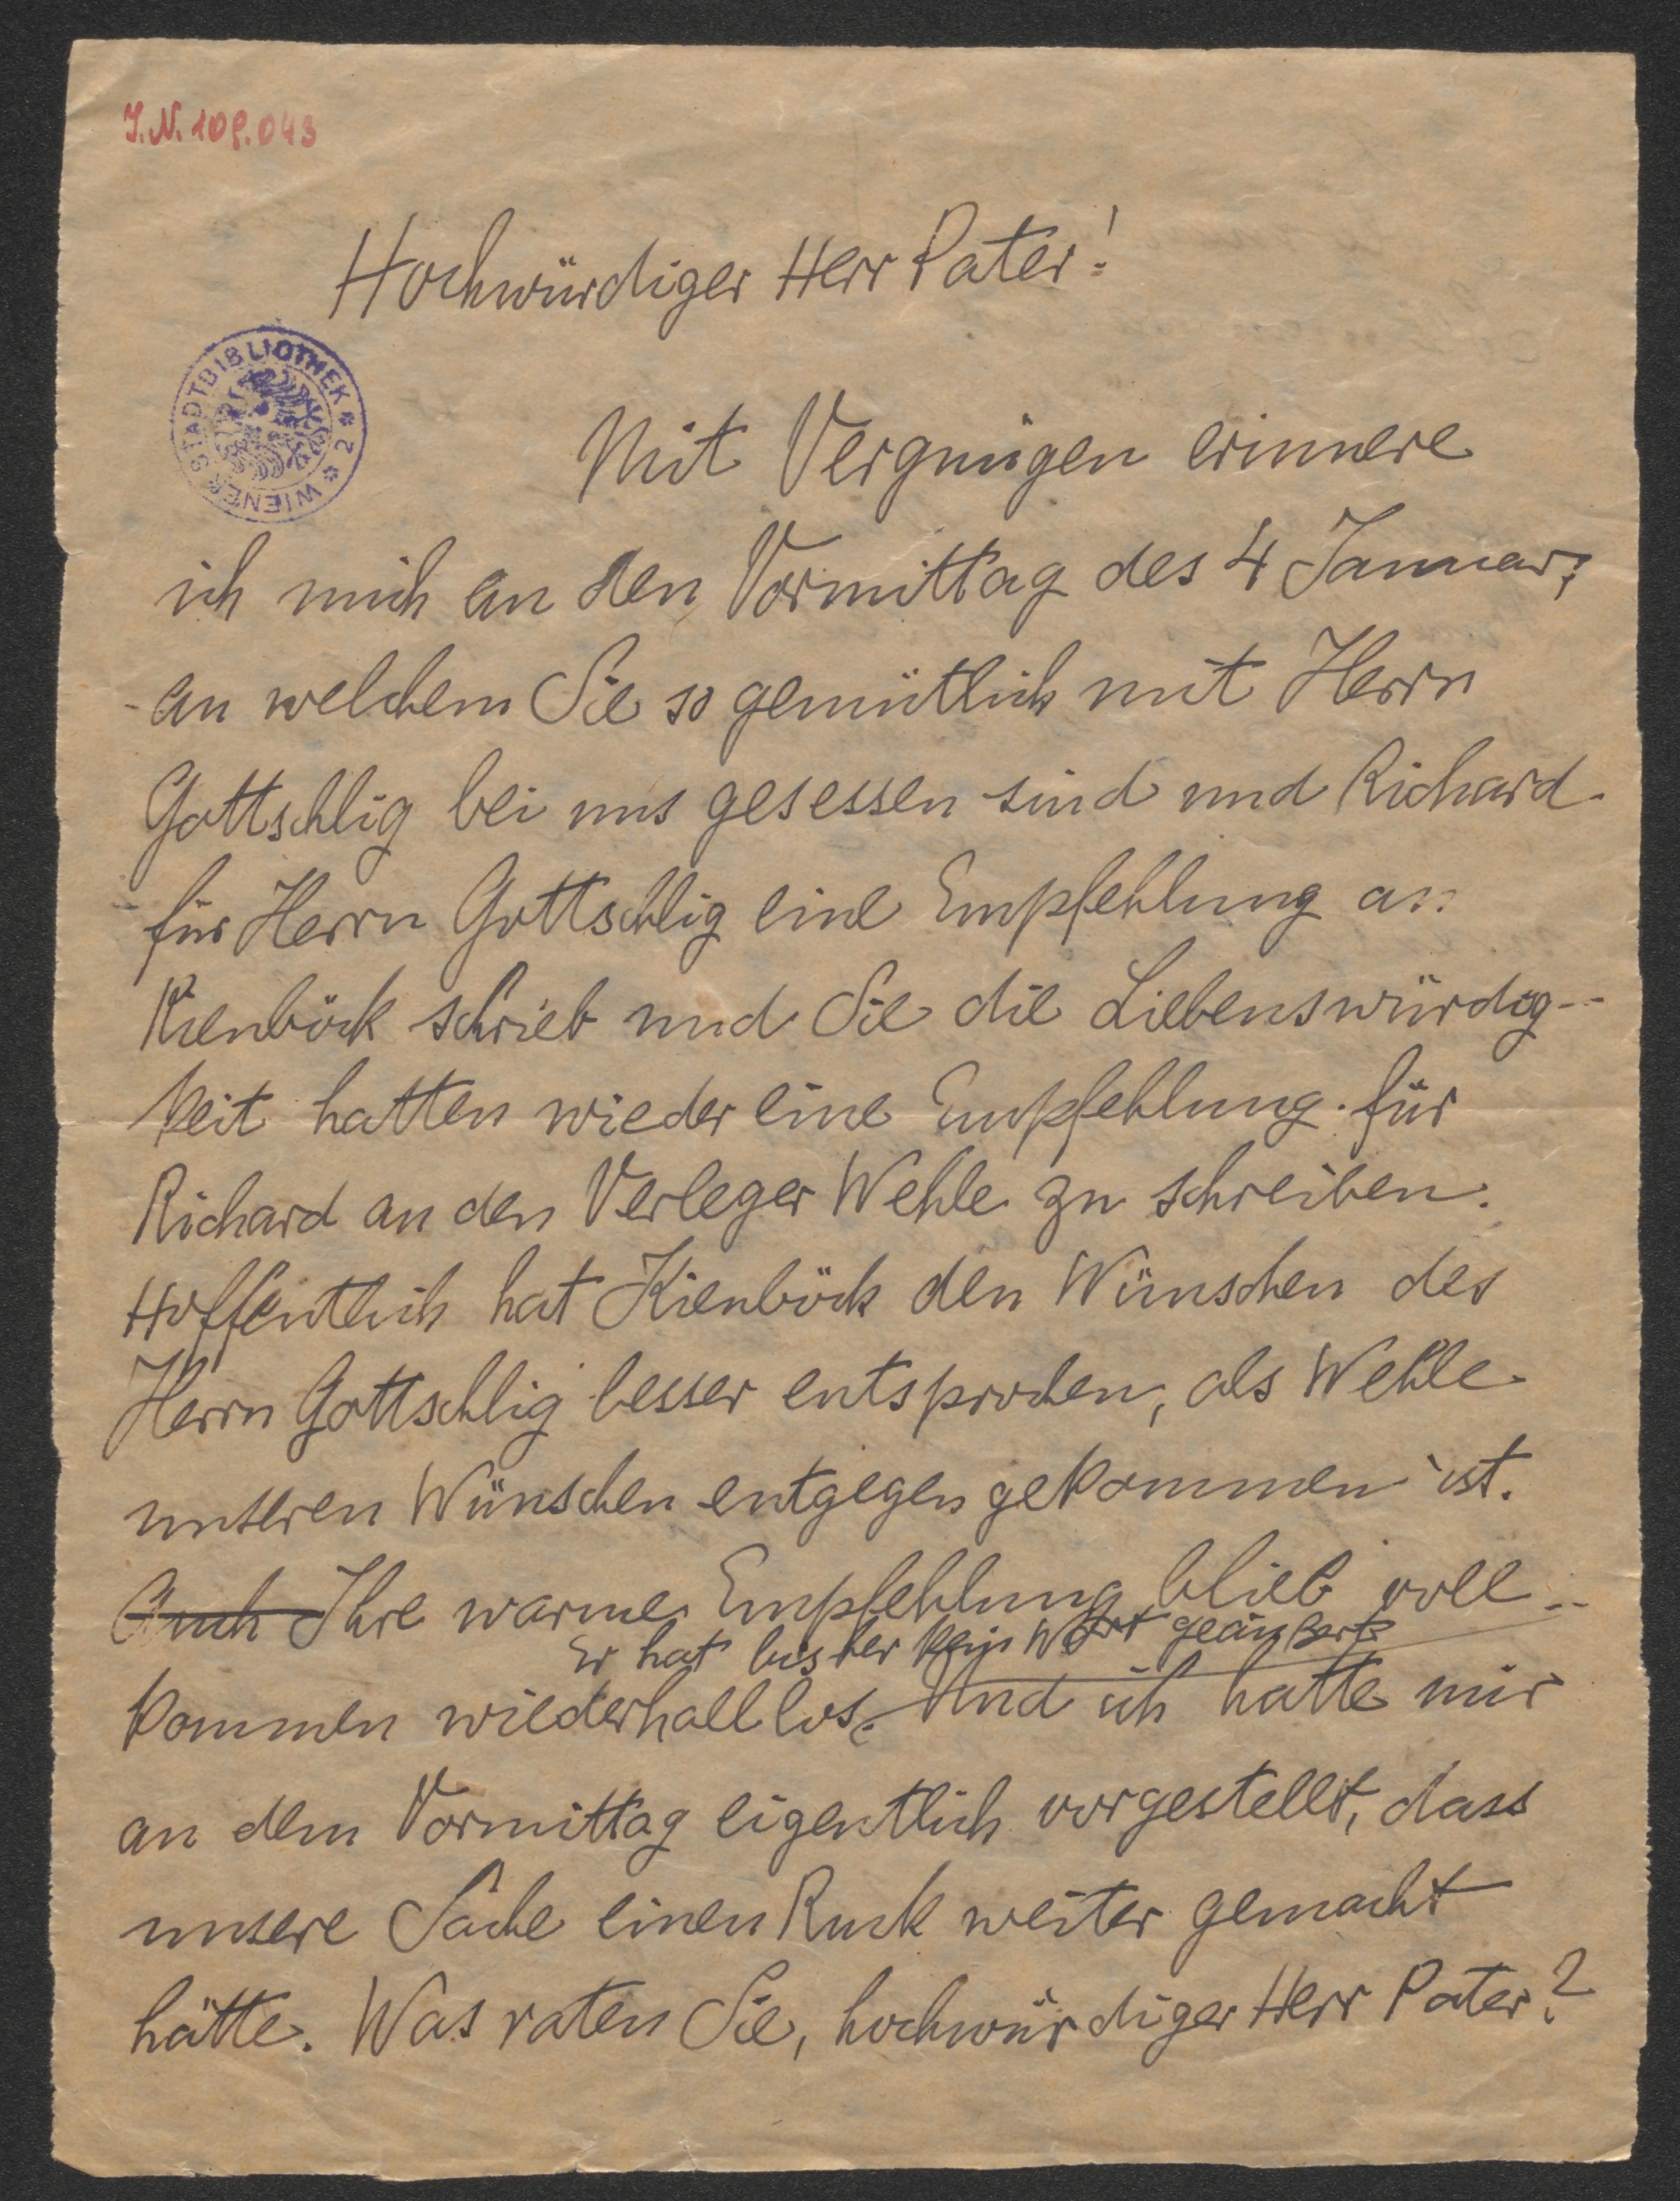 J.N. 109.043
Hochwürdiger Herr Pater!
WIENER STADTBIBLIOTHEK * 2 *
Mit Vergnügen erinnere
ich mich an den Vormittag des 4 Januar,
an welchem Sie so gemütlich mit Herrn
Gottschlig bei uns gesessen sind und Richard
für Herrn Gottschlig eine Empfehlung an
Kienböck schrieb und Sie die Liebenswürdig-
keit hatten wieder eine Empfehlung für
Richard an den Verleger Wehle zu schreiben.
Hoffentlich hat Kienböck den Wünschen des
Herrn Gottschlig besser entsprochen, als Wehle
unseren Wünschen entgegen gekommen ist.
Auch Ihre warme Empfehlung blieb voll-
Er hat bisher kein Wort geäußert
kommen wiederhall los. Und ich hatte mir
an dem Vormittag eigentlich vorgestellt, dass
unsere Sache einen Ruck weiter gemacht
hätte. Was raten Sie, hochwürdiger Herr Pater?